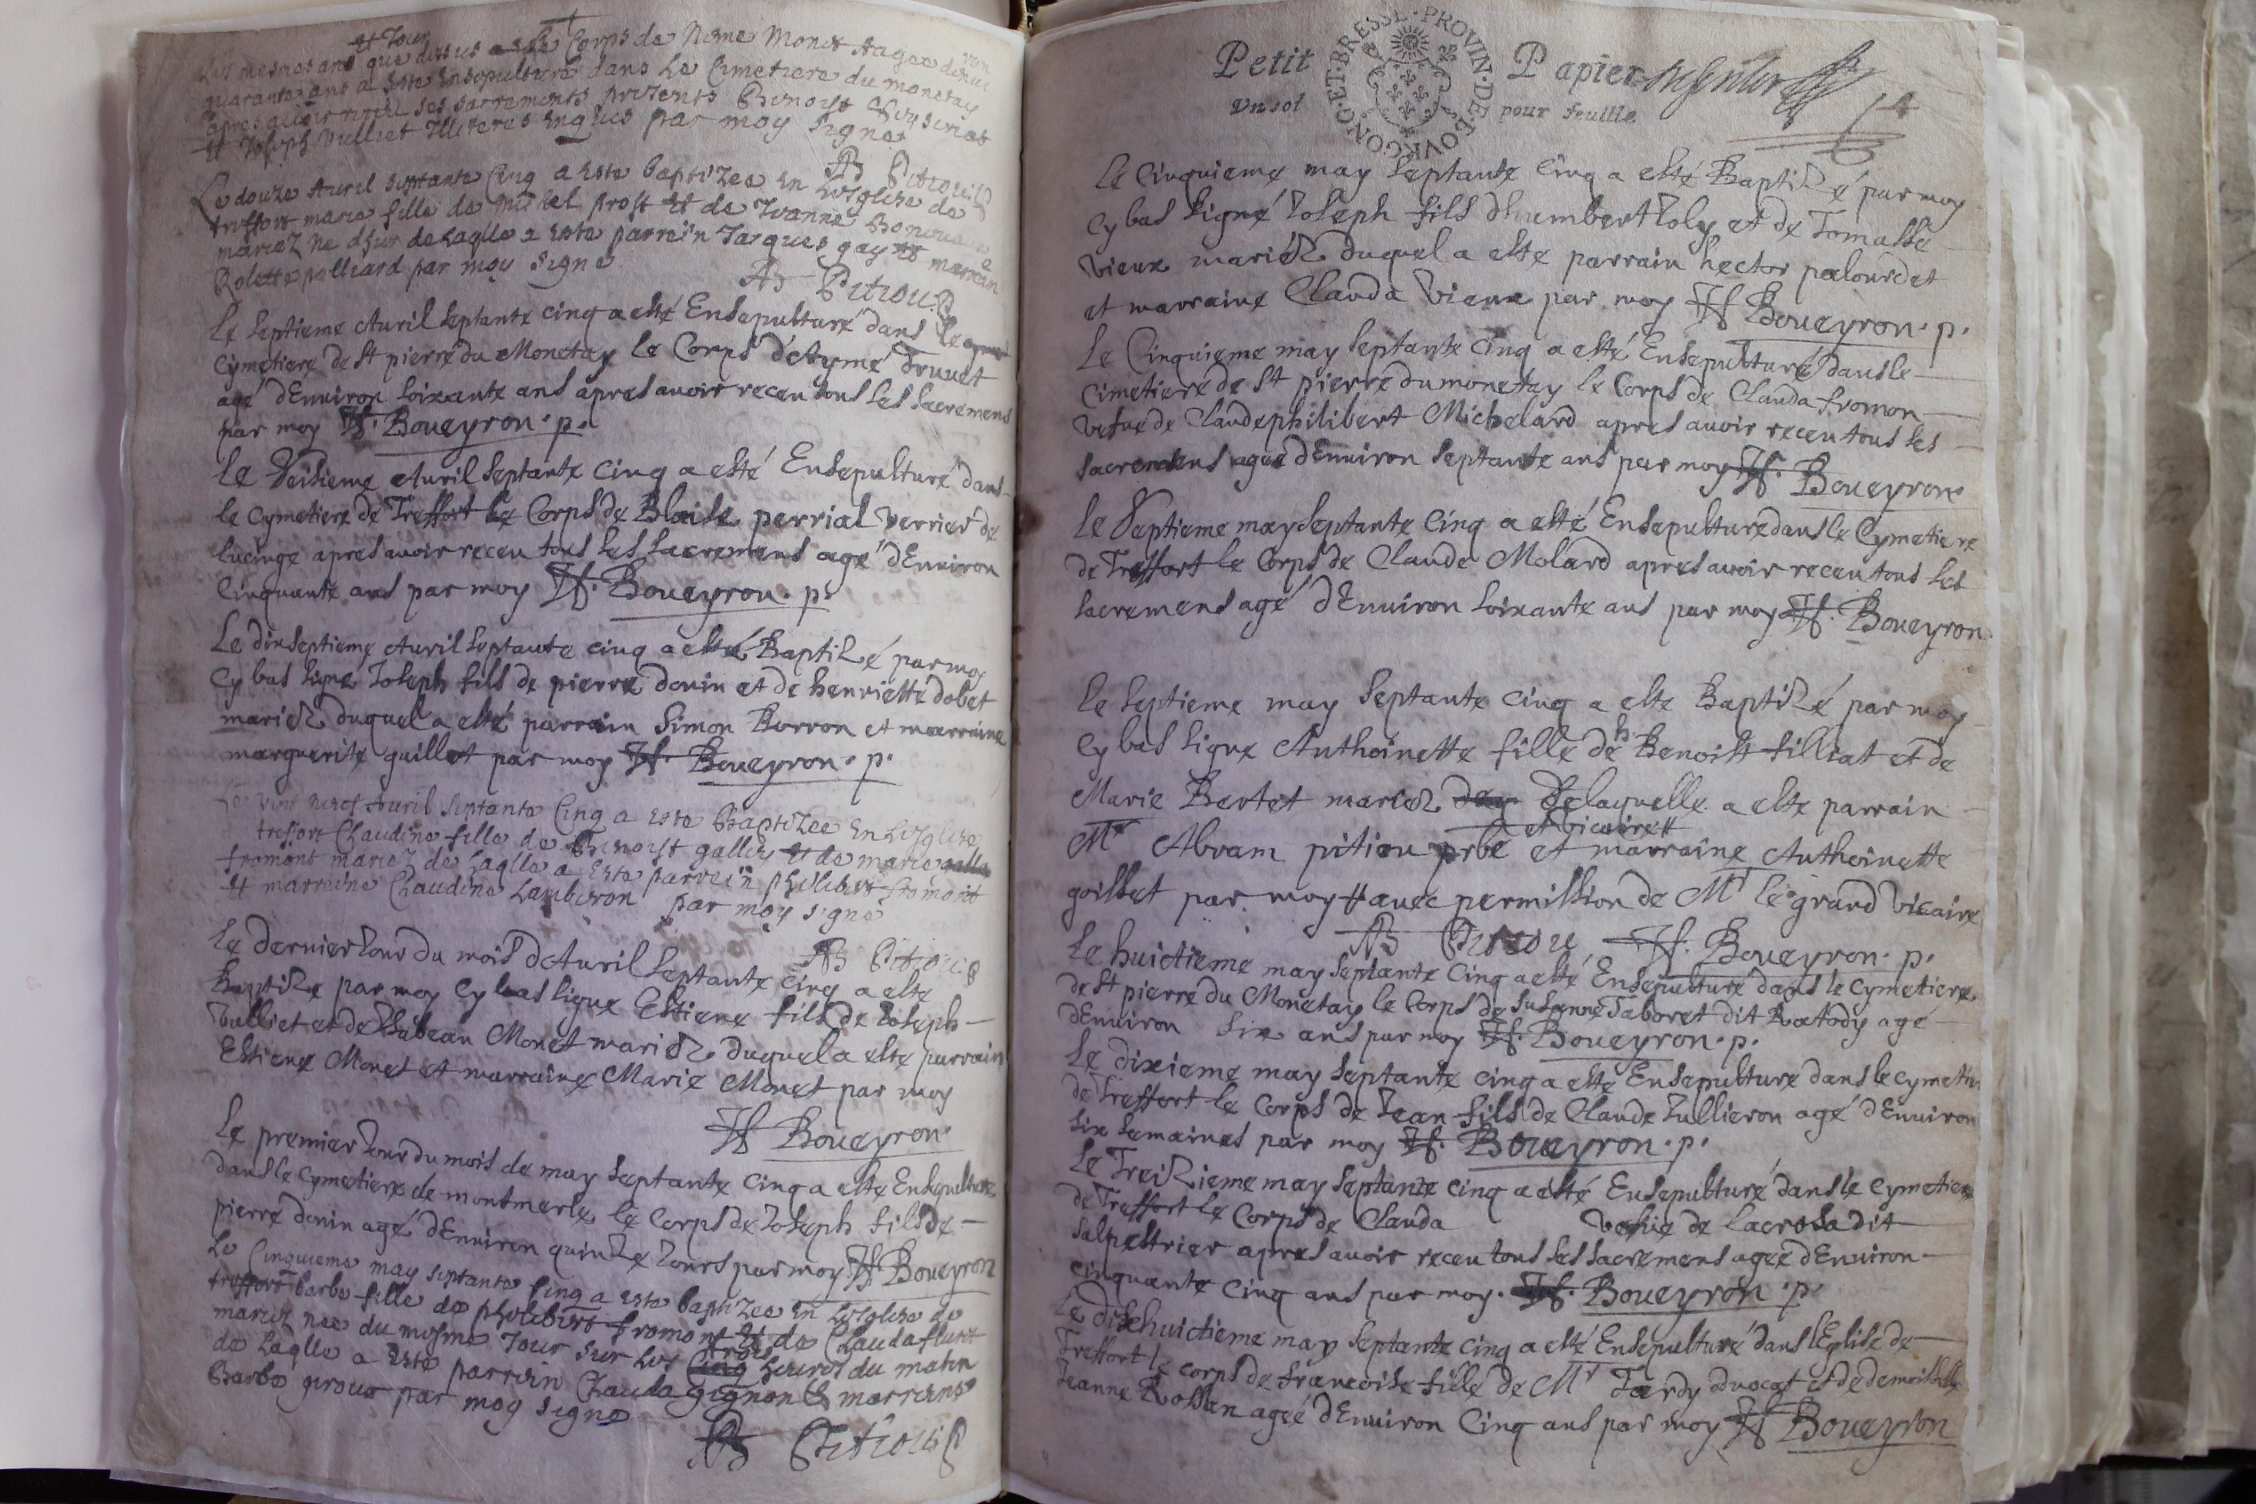 et Jour
Les mesmes ans que dessus le Corps de Monet Aagee
quarante ans a este ensepulture dans Le Cimetiere du monetay
apres avoir ses sacrements presents Benoist
et Joseph Vulliet par moy signe
AB Pitiou
Le douze Avril septante Cinq a este baptizee en Lesglize de
treffort marie fille de michel prost et de Jeanne
mariez de Laqlle a este parrein Jacques gay et marreine
par moy signe
AB Pitiou
Le septieme Avril septante cinq a esté Ensepulturé dans le
cymetiere de St pierre du Monetay le Corps d'Aymé Truvet
agé d'Environ soixante ans apres avoir receu tous les sacremens
par moy Boueyron. p.
Le Avril septante cinq a esté Ensepulturé dans
le cymetiere de Treffort le Corps de Blaise perrial verrier de
lucinge apres avoir receu tous les sacremens agé d'Environ
Cinquante ans par moy Boueyron. p.
Le dixseptieme Avril septante cinq a esté Baptizé par moy
cy bas signe Joseph fils de pierre donin et de henriette dobet
mariez duquel a esté parrain Simon Borron et marraine
marguerite guillot par moy Boueyron. p.
Le vint neuf Avril septante Cinq a este Baptizee en Lesglize
treffort Claudine fille de Benoist et de marie
fromont mariez de Laqlle a este parrein philibert fromont
et marreine Claudine Lamberon par moy signe
AB Pitiou
Le dernier Jour du mois d'Avril septante cinq a este
Baptize par moy cy bas signe Estiene fils de Joseph
Vulliet et de Ysabeau Monet mariez duquel a este parrain
Estiene Monet et marraine Marie Monet par moy
Boueyron.
Le premier Jour du mois de may septante cinq a este Ensepulture
dans le cymetiere de montmerle le Corps de Joseph fils de
pierre donin agé d'Environ quinze Jours par moy Boueyron
Le Cinquieme may septante Cinq a este baptizee en Lesglize de
treffort barbe fille de philibert fromont et de Clauda
mariez nee du mesme Jour sur les trois heures du matin
de Laqlle a este parrein Claude gignon et marreine
Barbe giroud par moy signe
AB Pitiou
PROVIN·DE·BOURGONG·ET·BRESSE
Petit Papier
Un sol pour feuille
Le Cinquieme may septante cinq a esté Baptizé par moy
cy bas signé Joseph fils d'humbert Joly et de Tomasse
vieux mariez duquel a este parrain hector palourdet
et marraine Clauda vieux par moy Boueyron. p.
Le Cinquieme may septante cinq a esté Ensepulturé dans le
cimetiere de St pierre du monetay le Corps de Clauda fromon
vefve de Claude philibert Michelard apres avoir receu tous les
sacremens agee d'Environ septante ans par moy Boueyron.
Le septieme may septante cinq a esté Ensepulturé dans le Cymetiere
de Treffort le Corps de Claude Molard apres avoir receu tous les
sacremens agé d'Environ soixante ans par moy Boueyron.
Le septieme may septante cinq a este Baptizé par moy
cy bas signe Anthoinette fille de h Benoist filliat et de
Marie Bertet mariez de laquelle a este parrain
et vicaire
Mr Abram pitiou pbre et marraine Anthoinette
goillet par moy avec permission de Mr le grand vicaire
AB Pitiou Boueyron. p.
Le huictieme may septante cinq a esté Ensepulturé dans le Cymetiere
de St pierre du Monetay le Corps de Susanne Taboret dit Ratody age
d'Environ six ans par moy Boueyron. p.
Le dixieme may septante cinq a esté Ensepulturé dans le cymetiere
de Treffort le Corps de Jean fils de Claude Jullieron agé d'Environ
six semaines par moy Boueyron. p.
Le Treizieme may septante cinq a esté Ensepulturé dans le Cymetiere
de Treffort le Corps de Clauda vefve de lacrosa dit
salpestrier apres avoir receu tous les sacremens agee d'Environ
cinquante cinq ans par moy. Boueyron. p.
Le dixhuictieme may septante cinq a esté Ensepulturé dans l'Eglise de
Treffort le corps de francoise fille de Mr Tardy advocat et de demoiselle
Jeanne Rossan ageé d'Environ Cinq ans par moy Boueyron